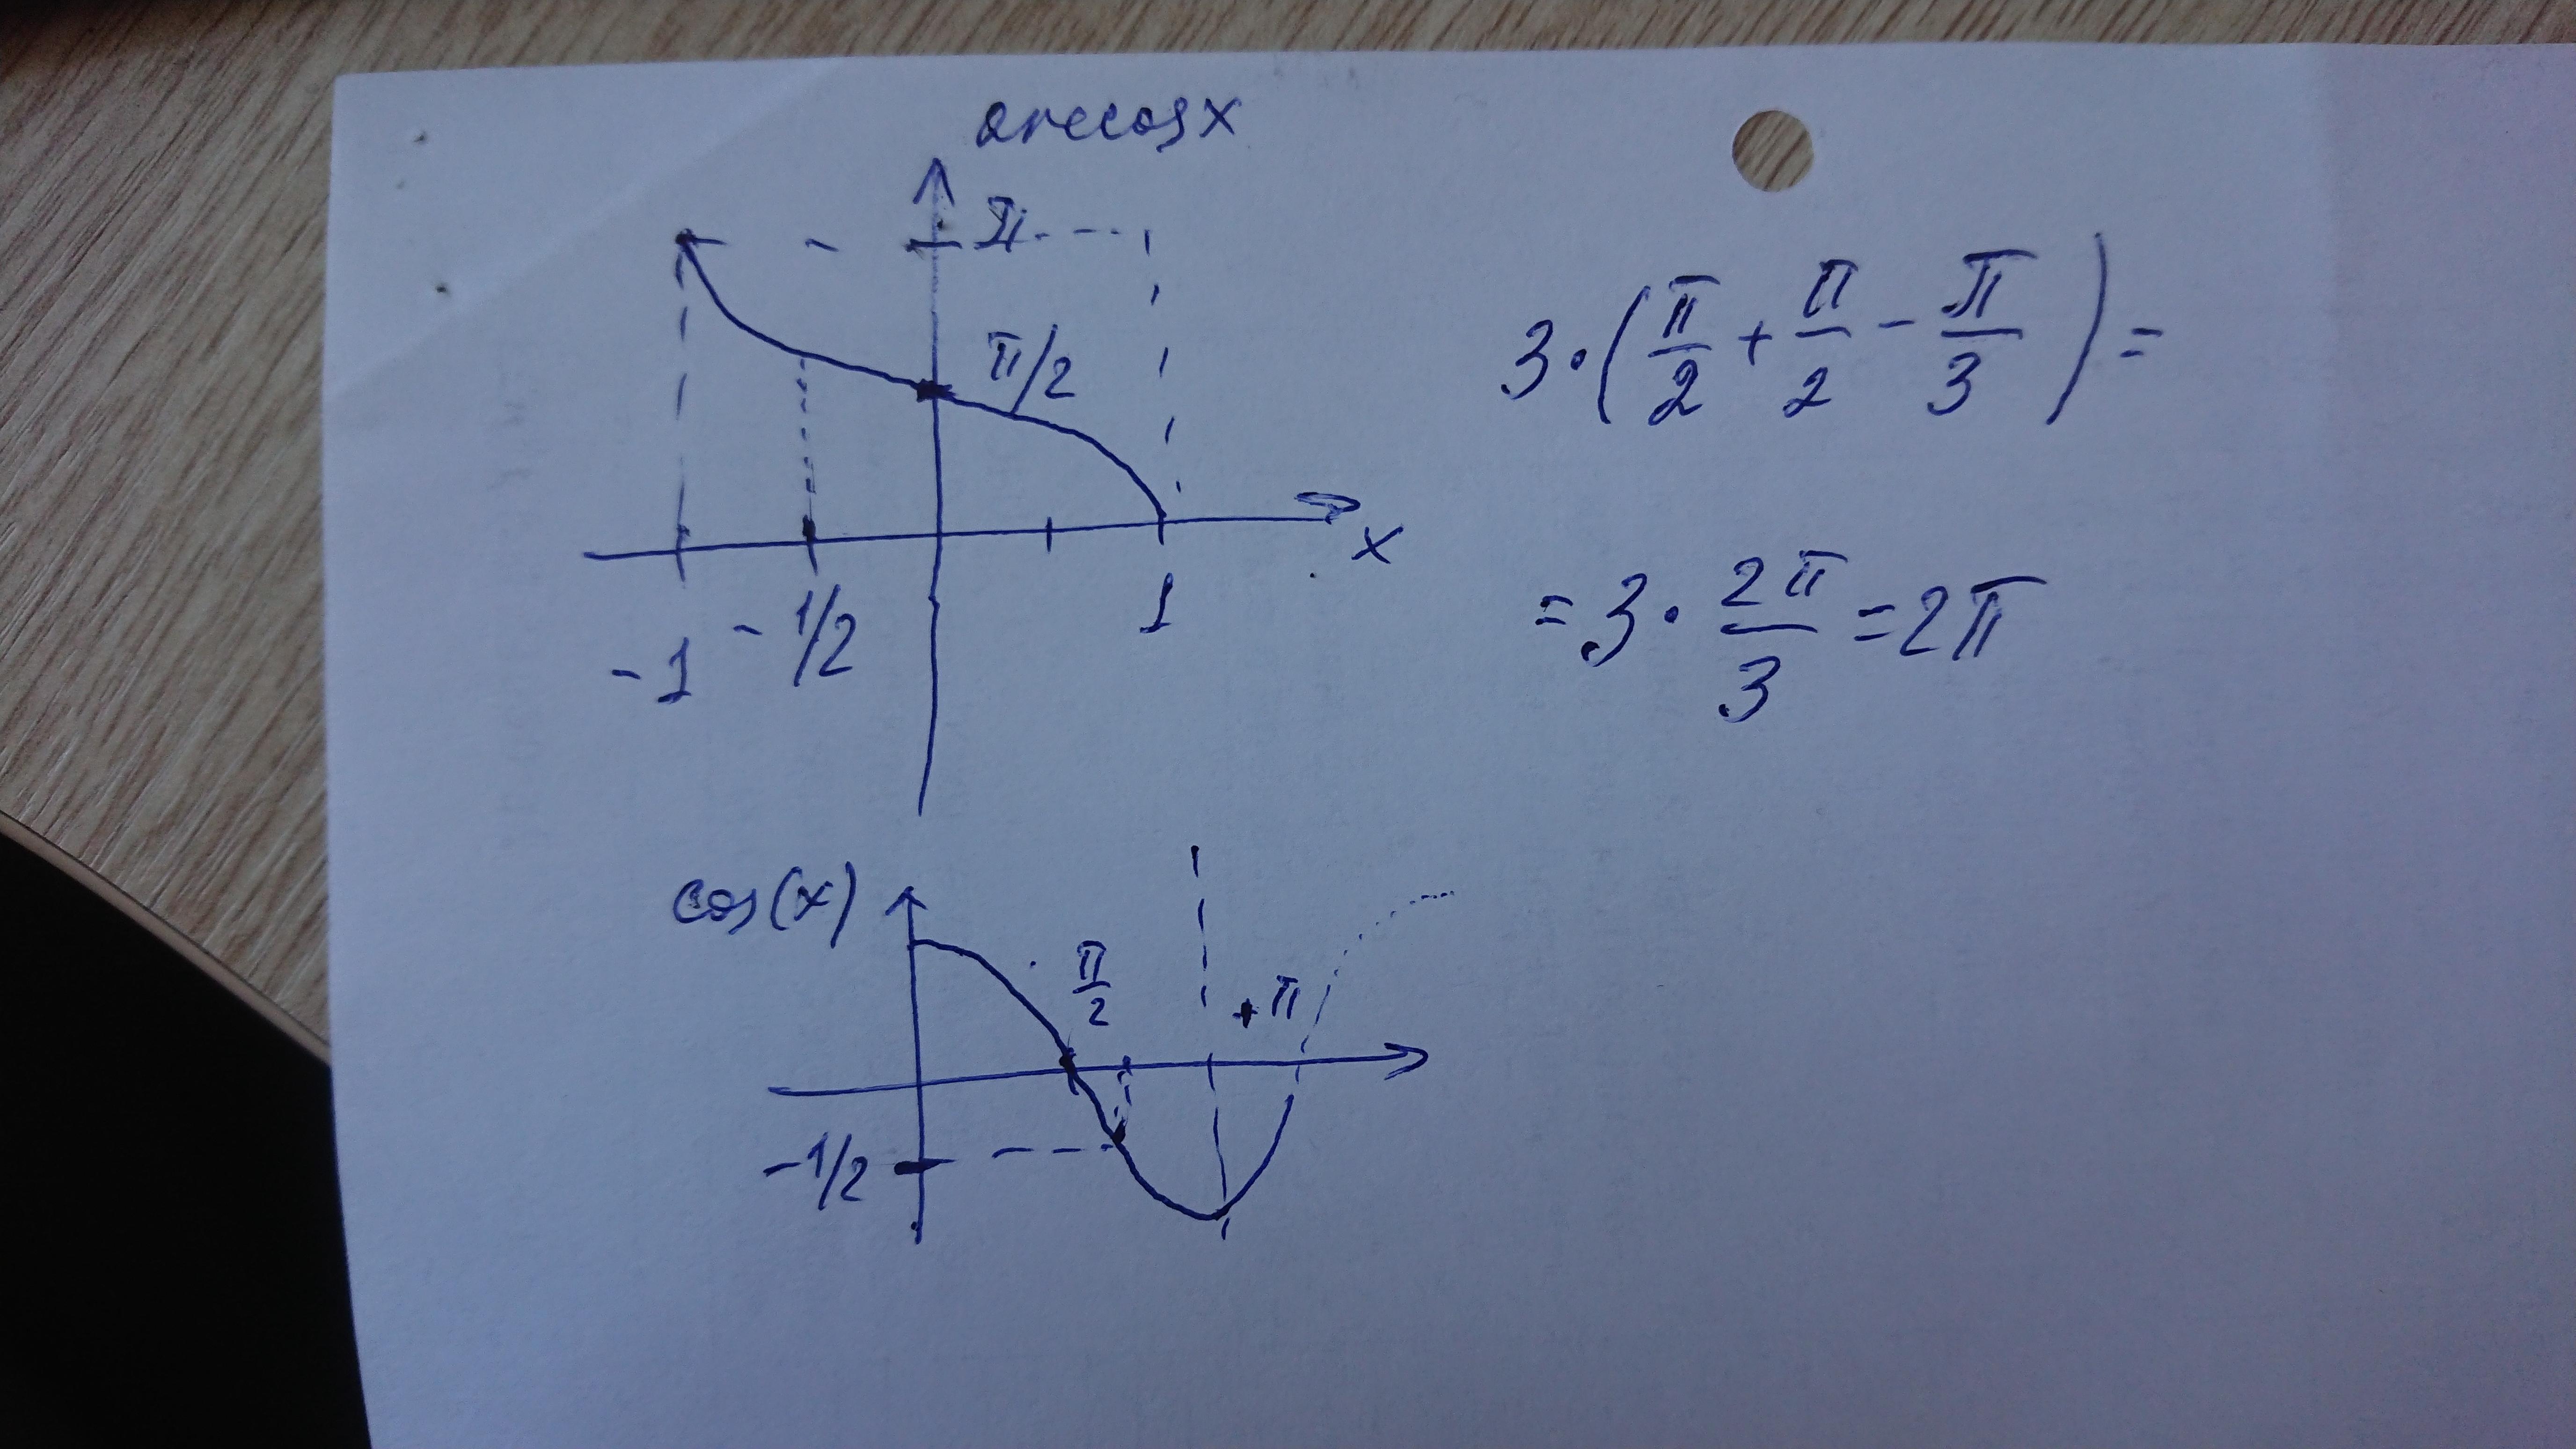 arccos x
π
π/2
x
-1
-1/2
1
3·(π/2 + π/2 - π/3) =
= 3 · 2π/3 = 2π
cos(x)
π/2
+π
-1/2